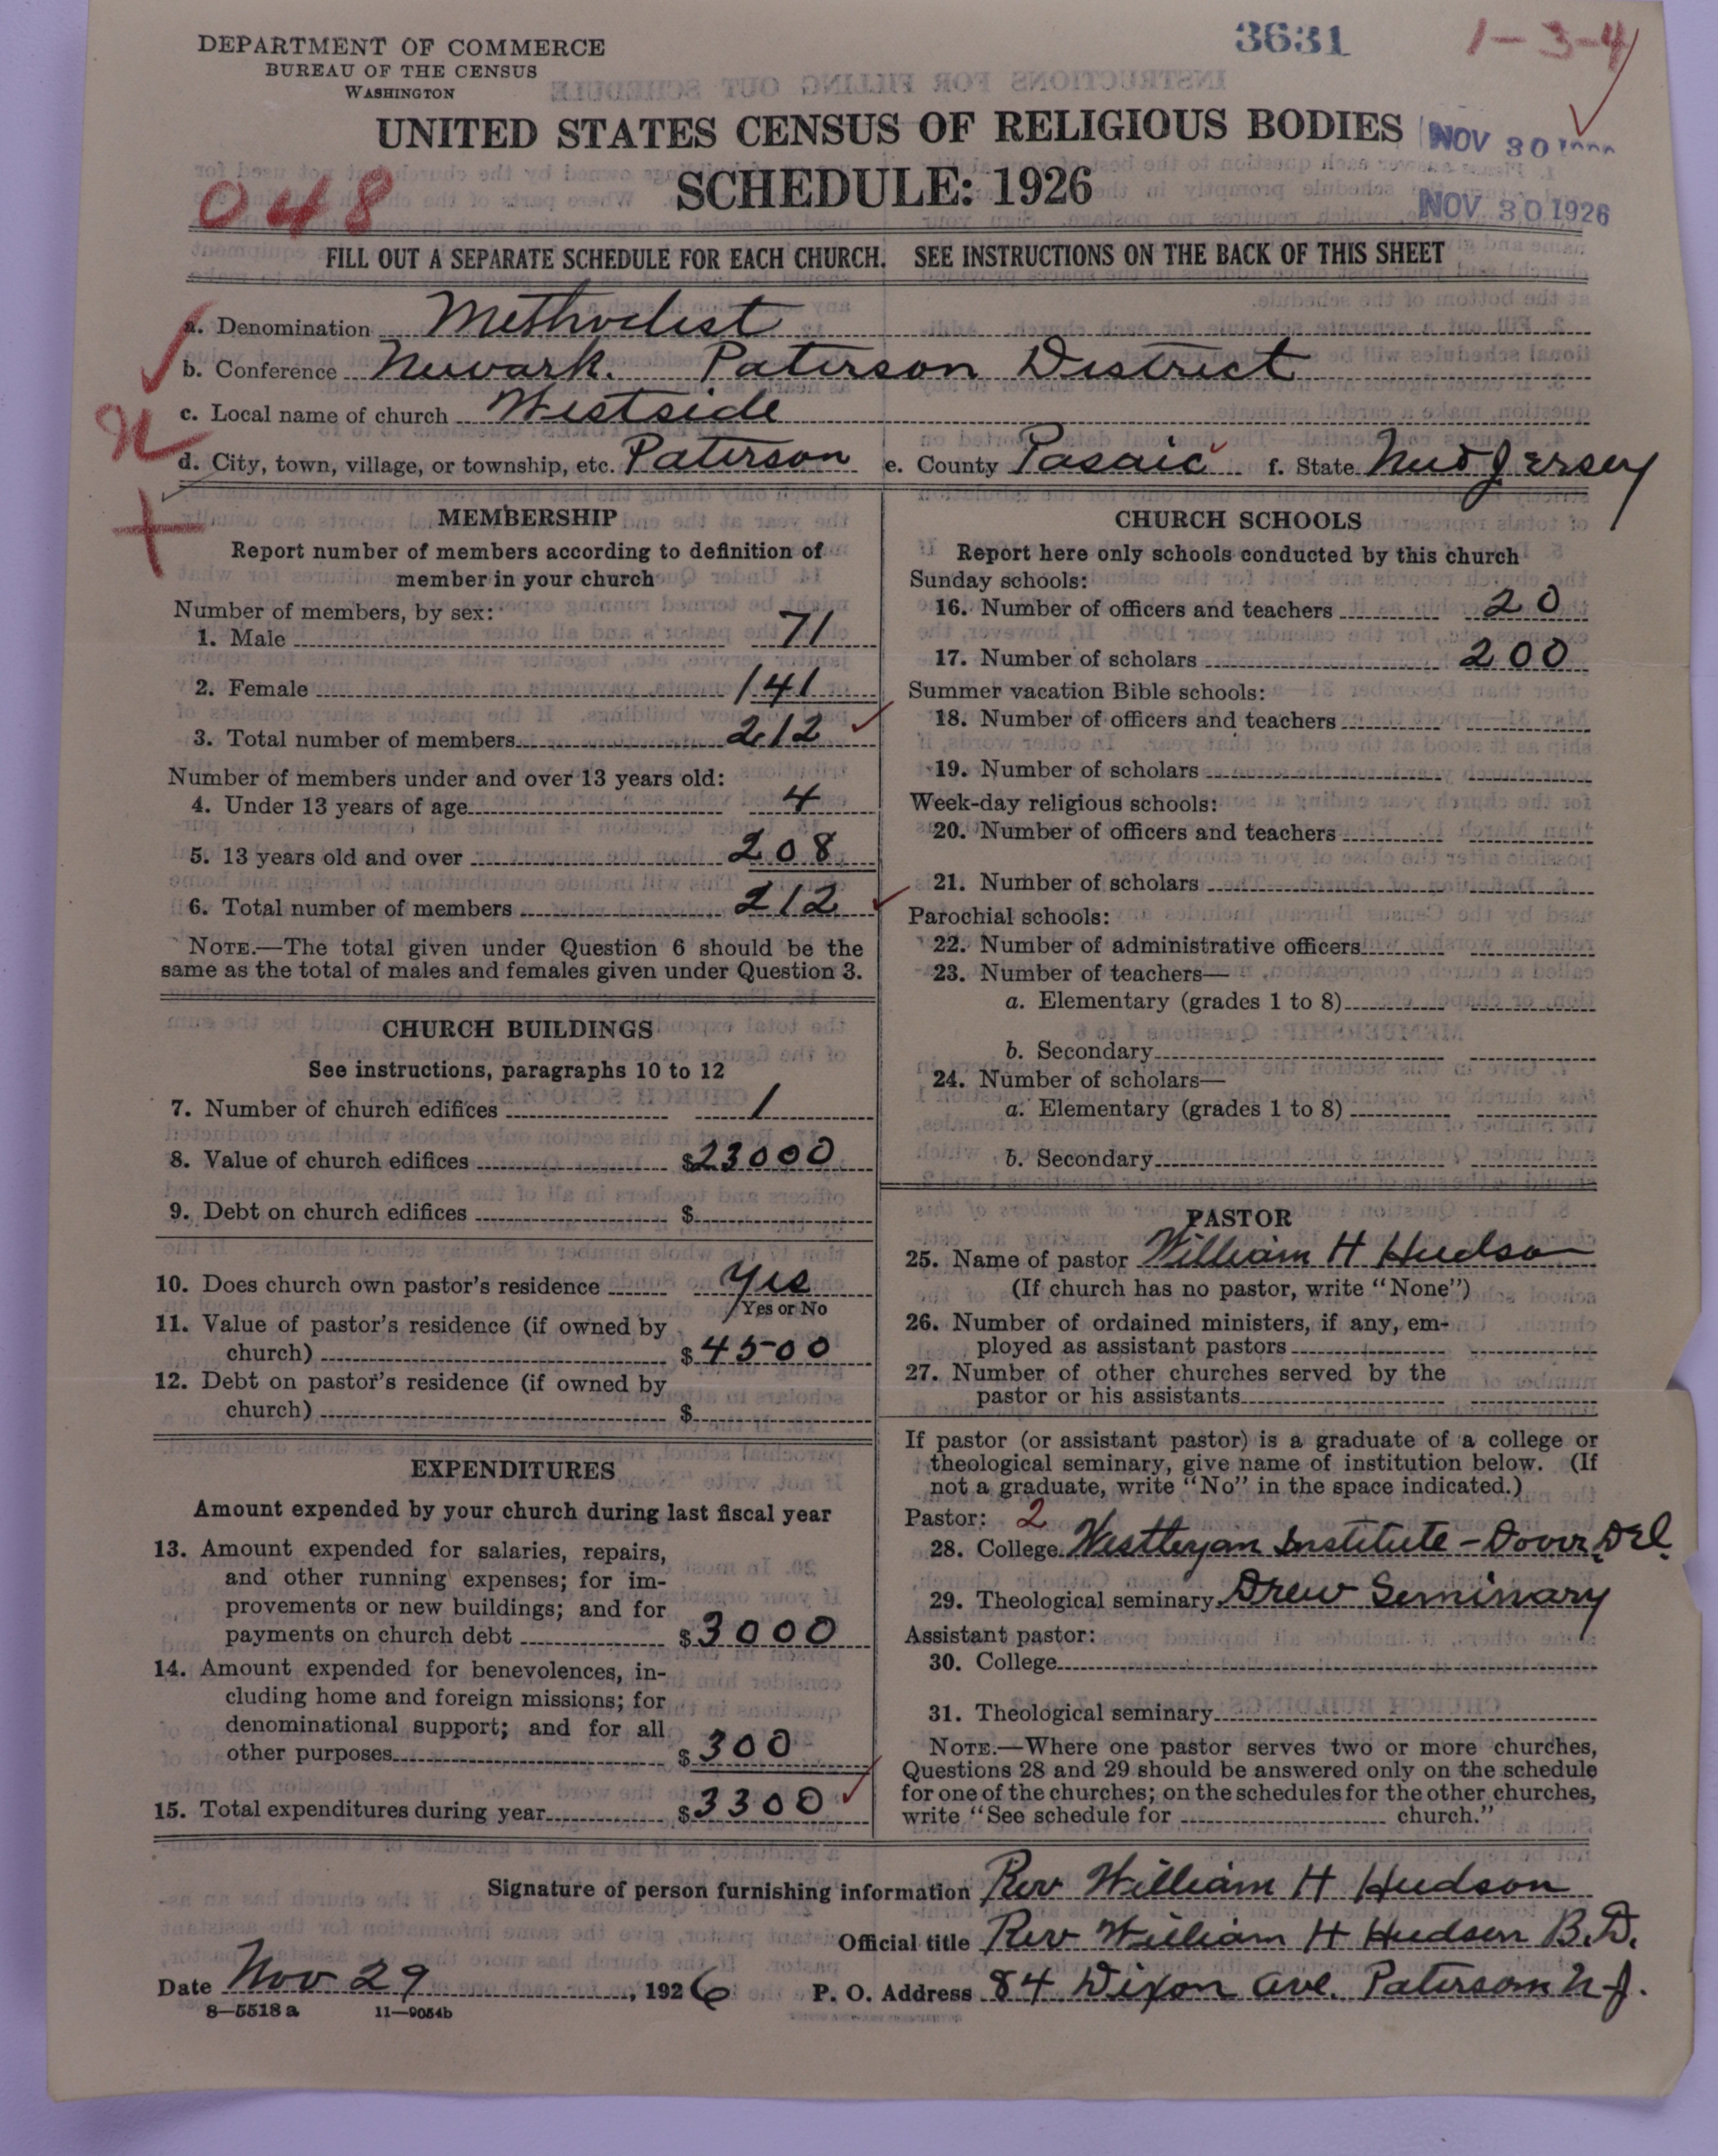 DEPARTMENT OF COMMERCE
BUREAU OF THE CENSUS
WASHINGTON
3631
1-3-4
UNITED STATES CENSUS OF RELIGIOUS BODIES
NOV 30
SCHEDULE: 1926
NOV 30 1926
048
FILL OUT A SEPARATE SCHEDULE FOR EACH CHURCH. SEE INSTRUCTIONS ON THE BACK OF THIS SHEET
a. Denomination Methodist
b. Conference Newark. Paterson District
c. Local name of church Westside
d. City, town, village, or township, etc. Paterson e. County Pasaic f. State New Jersey
MEMBERSHIP
Report number of members according to definition of
member in your church
Number of members, by sex:
1. Male 71
2. Female 141
3. Total number of members 212
Number of members under and over 13 years old:
4. Under 13 years of age 4
5. 13 years old and over 208
6. Total number of members 212
NOTE.—The total given under Question 6 should be the
same as the total of males and females given under Question 3.
CHURCH BUILDINGS
See instructions, paragraphs 10 to 12
7. Number of church edifices 1
8. Value of church edifices $23000
9. Debt on church edifices $
10. Does church own pastor's residence Yes
Yes or No
11. Value of pastor's residence (if owned by
church) $4500
12. Debt on pastor's residence (if owned by
church) $
EXPENDITURES
Amount expended by your church during last fiscal year
13. Amount expended for salaries, repairs,
and other running expenses; for im-
provements or new buildings; and for
payments on church debt $3000
14. Amount expended for benevolences, in-
cluding home and foreign missions; for
denominational support; and for all
other purposes $300
15. Total expenditures during year $3300
CHURCH SCHOOLS
Report here only schools conducted by this church
Sunday schools:
16. Number of officers and teachers 20
17. Number of scholars 200
Summer vacation Bible schools:
18. Number of officers and teachers
19. Number of scholars
Week-day religious schools:
20. Number of officers and teachers
21. Number of scholars
Parochial schools:
22. Number of administrative officers
23. Number of teachers—
a. Elementary (grades 1 to 8)
b. Secondary
24. Number of scholars—
a. Elementary (grades 1 to 8)
b. Secondary
PASTOR
25. Name of pastor William H Hudson
(If church has no pastor, write "None")
26. Number of ordained ministers, if any, em-
ployed as assistant pastors
27. Number of other churches served by the
pastor or his assistants
If pastor (or assistant pastor) is a graduate of a college or
theological seminary, give name of institution below. (If
not a graduate, write "No" in the space indicated.)
Pastor: 2
28. College Westleyan Institute - Dover, Del.
29. Theological seminary Drew Seminary
Assistant pastor:
30. College
31. Theological seminary
NOTE.—Where one pastor serves two or more churches,
Questions 28 and 29 should be answered only on the schedule
for one of the churches; on the schedules for the other churches,
write "See schedule for church."
Signature of person furnishing information Rev William H Hudson
Official title Rev William H Hudson B.D.
Date Nov 29, 1926 P. O. Address 84 Dixon Ave. Paterson N.J.
8—5518 a 11—9054b